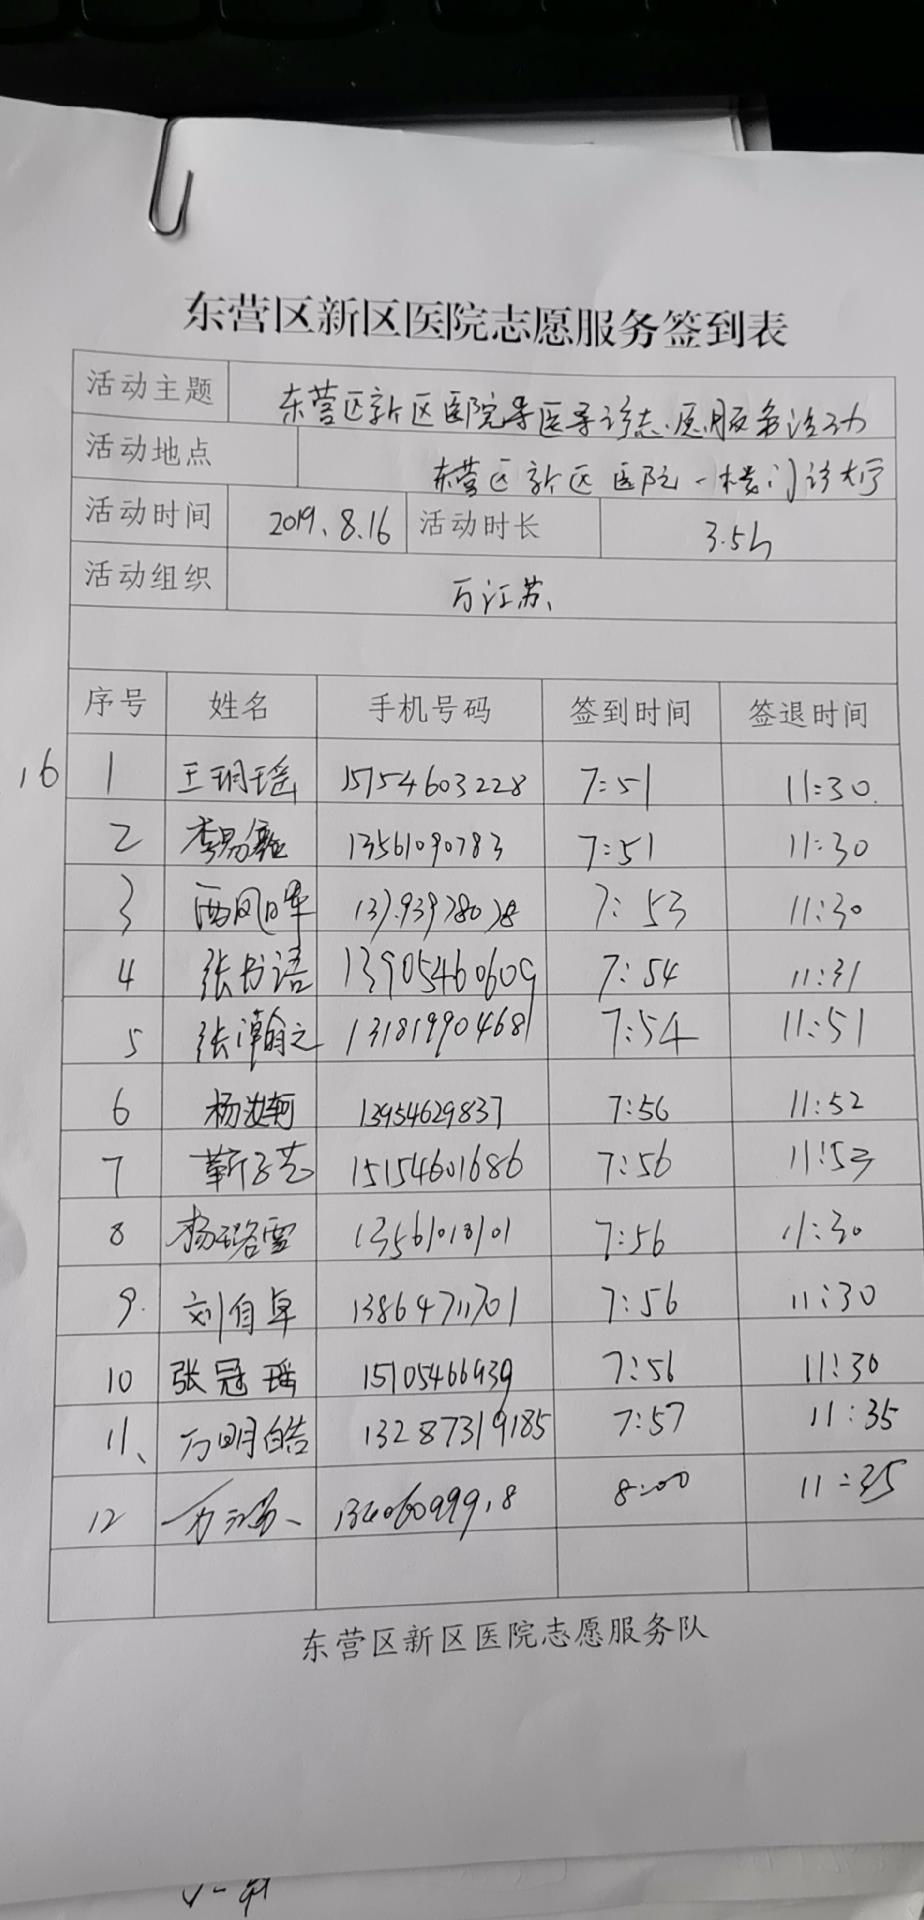 东营区新区医院志愿服务签到表
活动主题 东营区新区医院导医导诊志愿服务活动
活动地点 东营区新区医院一楼门诊大厅
活动时间 2019.8.16 活动时长 3.5h
活动组织 万江苏
序号 姓名 手机号码 签到时间 签退时间
16 1 王玥瑶 15154603228 7:51 11:30
2 李易 13561090783 7:51 11:30
3 西风 7:53 11:30
4 张书语 13905460609 7:54 11:31
5 张瀚之 13181990468 7:54 11:51
6 杨 13954629837 7:56 11:52
7 靳子艺 15154601686 7:56 11:53
8 杨璐雪 13561013101 7:56 11:30
9. 刘自卓 13864711701 7:56 11:30
10 张冠瑶 15105466939 7:56 11:30
11、 万明皓 13287319185 7:57 11:35
12 8:00 11:35
东营区新区医院志愿服务队